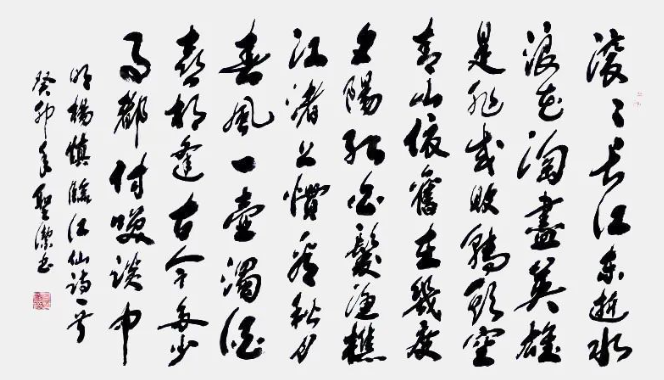 滚〻长江东逝水
浪花淘盡英雄
是非成敗轉頭空
青山依舊在幾度
夕陽紅白髮漁樵
江渚上慣看秋月
春風一壺濁酒
喜相逢古今多少
事都付笑談中
明楊慎臨江仙詩一首
癸卯年聖潔书